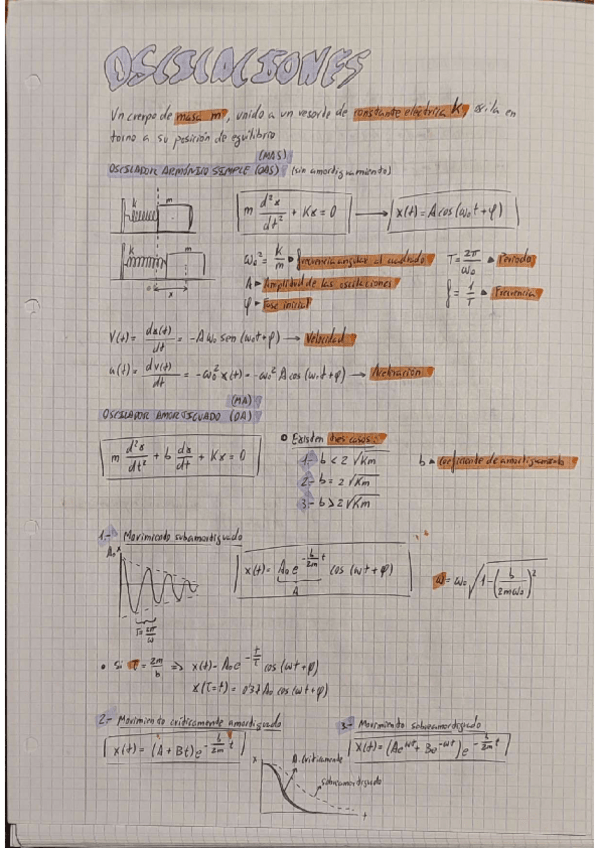 OSCILACIONES
Un cuerpo de masa m, unido a un resorte de constante eléctrica K, oscila en
torno a su posición de equilibrio
(MAS)
OSCILADOR ARMÓNICO SIMPLE (OAS) (sin amortiguamiento)
k m
m d²x/dt² + Kx = 0 → x(t) = A cos(ω₀t + φ)
k m
0 x
ω₀² = k/m ▸ frecuencia angular al cuadrado T = 2π/ω₀ ▸ Periodo
A ▸ Amplitud de las oscilaciones f = 1/T ▸ Frecuencia
φ ▸ Fase inicial
V(t) = dx(t)/dt = -Aω₀ sen(ω₀t + φ) → Velocidad
a(t) = dv(t)/dt = -ω₀² x(t) = -ω₀² A cos(ω₀t + φ) → Aceleración
(MA)
OSCILADOR AMORTIGUADO (OA)
m d²x/dt² + b dx/dt + Kx = 0
Existen tres casos:
1- b < 2√Km b ▸ coeficiente de amortiguamiento
2- b = 2√Km
3- b > 2√Km
1- Movimiento subamortiguado
A₀ x
x(t) = A₀ e^(-b/2m t) cos(ωt + φ) ω = ω₀ √(1 - (b/2mω₀)²)
A
T = 2π/ω
• Si τ = 2m/b ⇒ x(t) = A₀e^(-t/τ) cos(ωt + φ)
x(τ=t) = 0'37 A₀ cos(ωt + φ)
2- Movimiento críticamente amortiguado
x(t) = (A + Bt)e^(-b/2m t)
3- Movimiento sobreamortiguado
x(t) = (Ae^(ωt) + Be^(-ωt))e^(-b/2m t)
x A. críticamente
sobreamortiguado
t